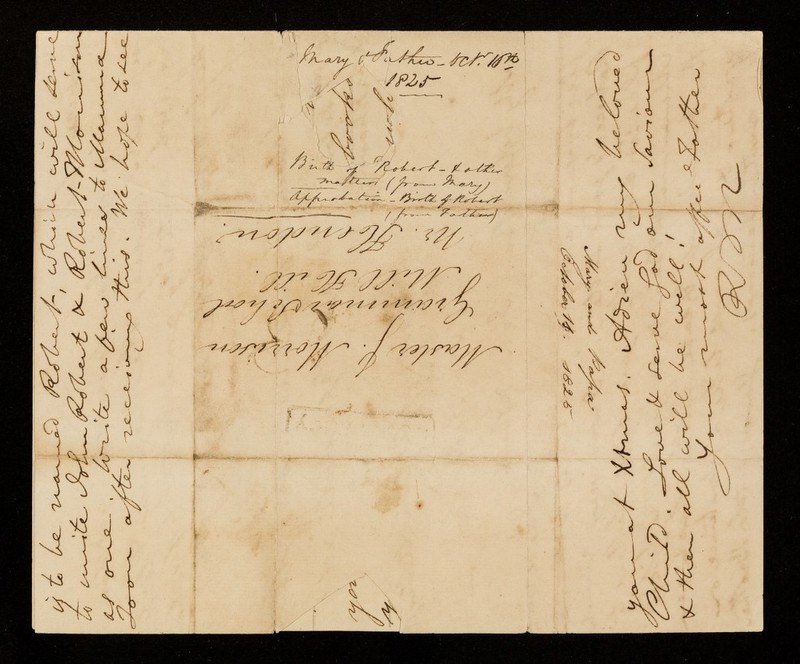 is to be named Robert, which will serve
to unite John Robert & Robert Morrison
as one. Write a few lines to Mamma
soon after receiving this. We hope to see
you at Xtmas. Adieu my beloved
Child. Love & serve God our Saviour
& then all will be well!
Your most affec Father
RM
Mary & Father - Octr. 16th
1825
books
Birth of Robert - & other
matters (from Mary)
Approbation - Birth of Robert
(from Father)
Master J. Morrison
Grammar School
Mill Hill.
Nr. Hendon.
Mary and Papa
October 19. 1825
you